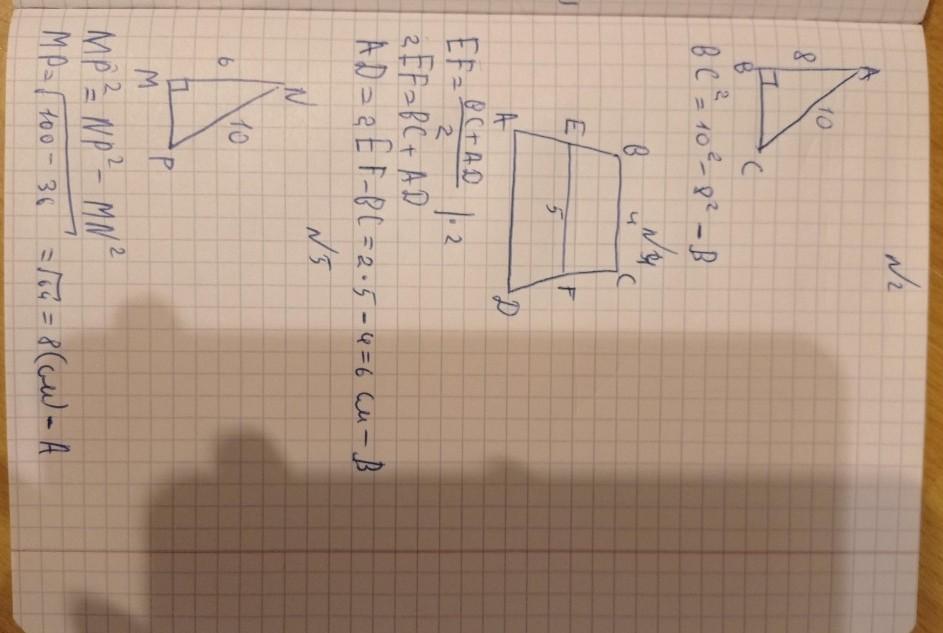 №2
A
8
10
B
C
BC² = 10² - 8² - В
№4
B 4 C
E 5 F
A
D
EF = (BC + AD)/2 | · 2
2EF = BC + AD
AD = 2EF - BC = 2 · 5 - 4 = 6 см - В
№5
N
6
10
M
P
MP² = NP² - MN²
MP = √100 - 36 = √64 = 8 (см) - А